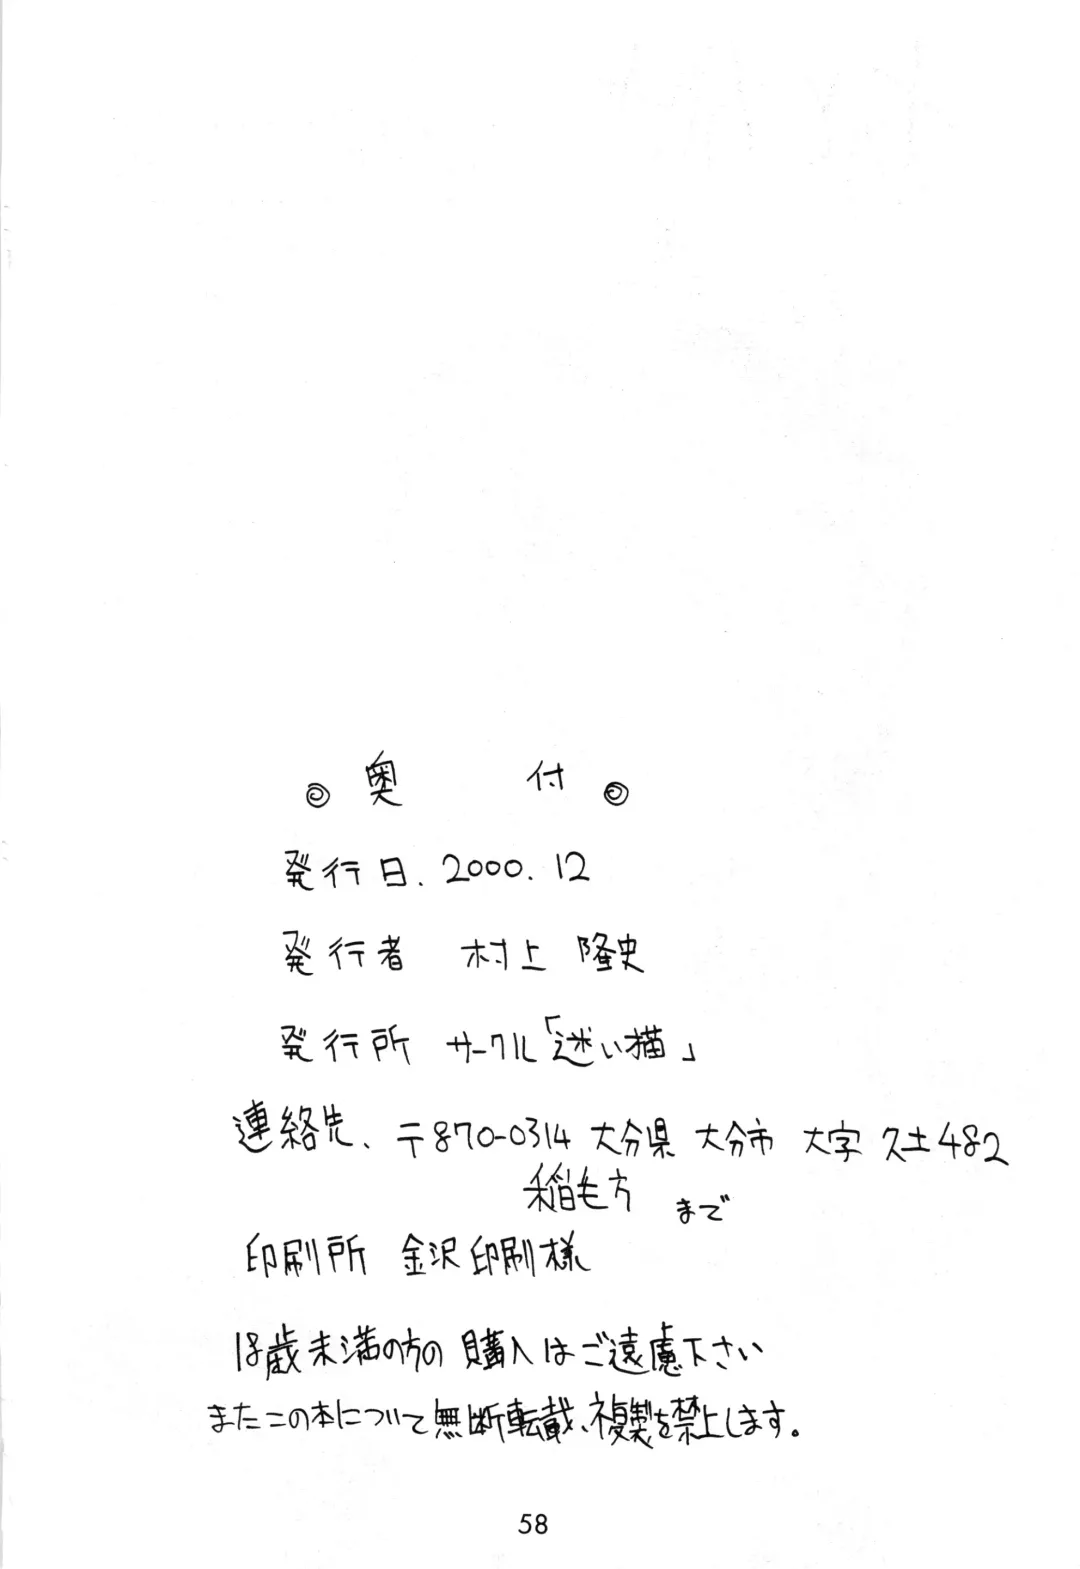 ◎ 奥 付 ◎
発行日. 2000. 12
発行者 村上 隆史
発行所 サークル「迷い猫」
連絡先、〒870-0314 大分県 大分市 大字 久土482
稲毛方 まで
印刷所 金沢印刷様
18歳未満の方の購入はご遠慮下さい
またこの本について無断転載、複製を禁止します。
58